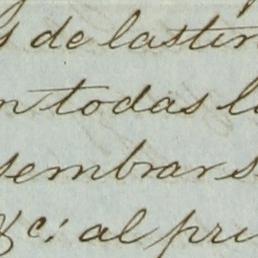 s de lastin
n todas la
sembrar s
&c: al pri